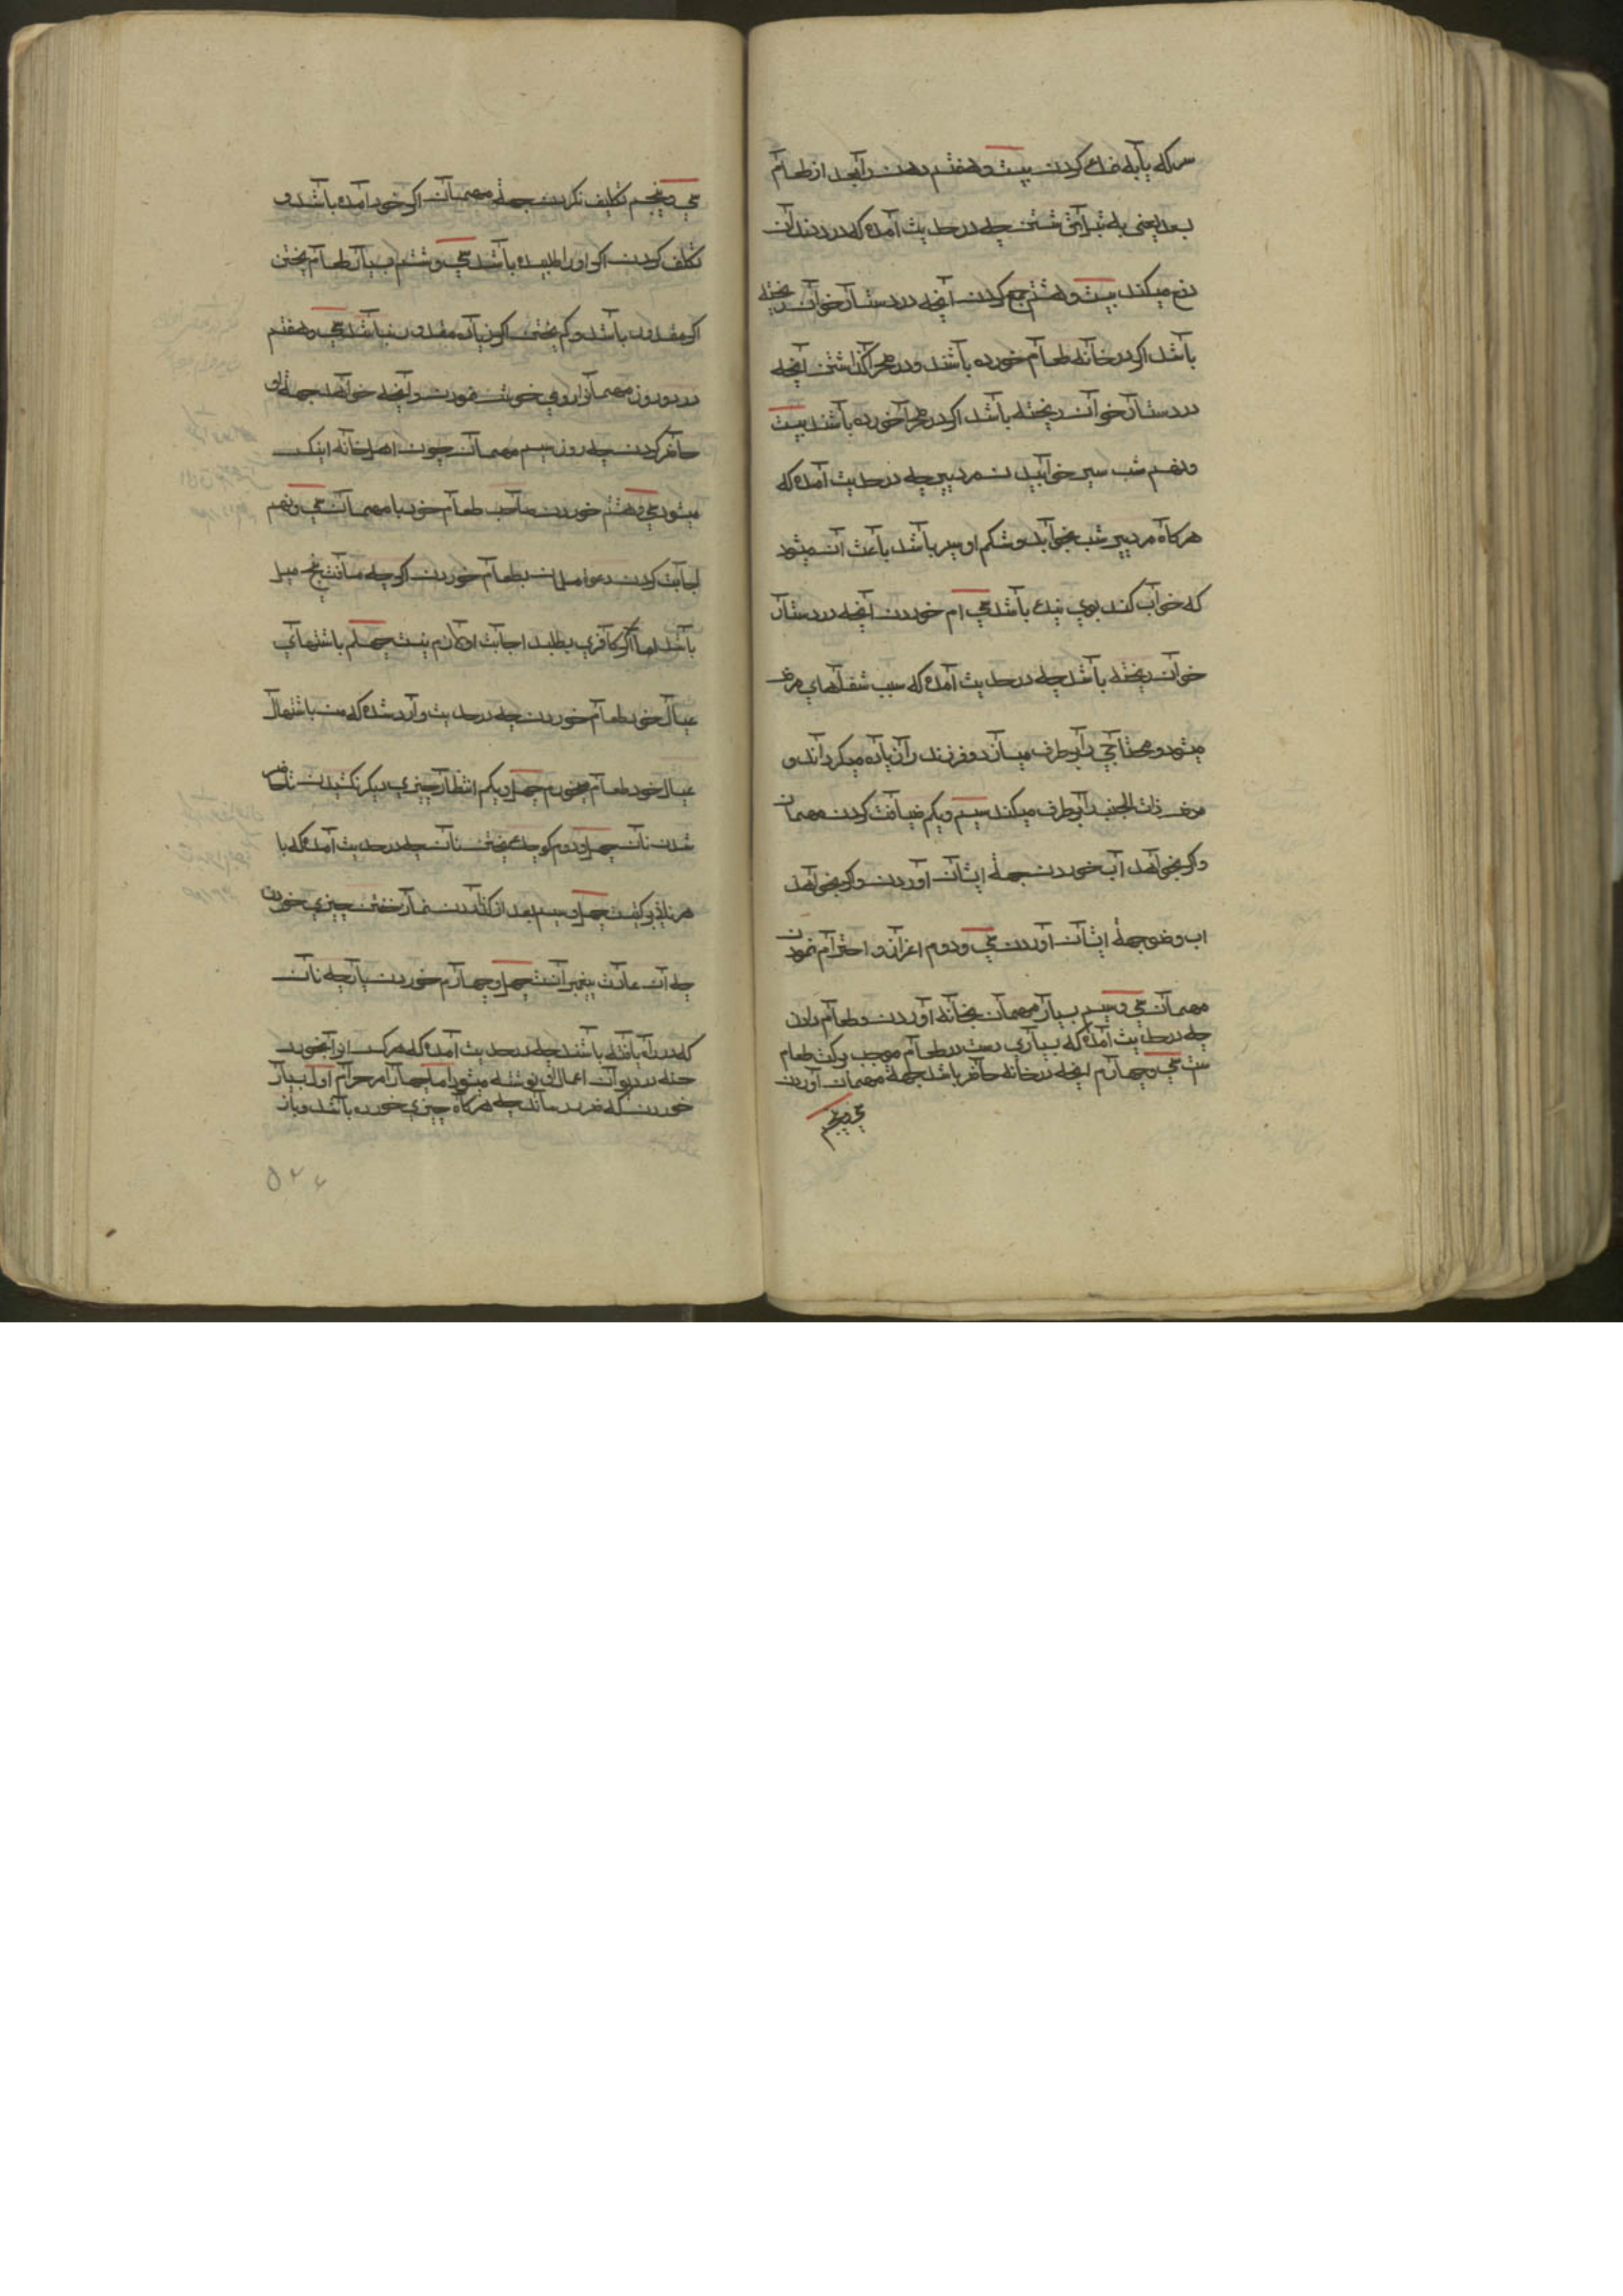 سرکه یا به ختم کردن بیست و هفتم دهن را بعد از طعام
بسعد یعنی به تیز آتی شستن چه در حدیث آمده که درد دندان
دفع میکند بیست و هشتم جمع کردن آنچه در دستار خوان ریخته
باشد اکر در خانه طعام خورده باشند و در صحرا کذاشتن آنچه
در دستار خوان ریخته باشد اکر در صحرا خورده باشند بیست
و نهم شب سیر خوابیدن مرد پیر چه در حدیث آمده که
هر کاه مرد پیر شب بخوابد و شکم او سیر باشد باعث آن میشود
که خواب کند بوی
باشد سی ام خوردن آنچه در دستار
خوان ریخته باشد چه در حدیث آمده که سبب شفاهای مرض
میشود و محتاجی را برطرف میسازد و فرزند را زیاده میکرداند و
مرض ذات الجنب را برطرف میکند سی و یکم ضیافت کردن مهمان
و اکر بخواهد آب خوردن جهة ایشان آوردن و اکر بخواهد
اب وضو جهة ایشان آوردن سی و دوم اعزاز و احترام نمودن
مهمان سی و سیم بسیار مهمان بخانه آوردن و طعام دادن
چه در حدیث آمده که بسیاری دست در طعام موجب برکت طعام
ست سی و چهارم انچه در خانه حاضر باشد جهة مهمان آوردن
سی و پنجم
سی و پنجم تکلیف نکردن جهة مهمان اکر خود آمده باشد و
تکلف کردن اکر او را طلبیده باشد سی و ششم بسیار طعام پختن
اکر مقدور باشد و کم پختن اکر زیاد مقدور نباشد سی و هفتم
در دو روز مهمان از روی خوش نمودن و آنچه خواهد جهة او
حاضر کردن چه روز سیم مهمان چون اهل خانه اینکس
میشود سی و هشتم خوردن صاحب طعام خود با مهمان سی و نهم
اجابت کردن دعوا مؤمن بطعام خوردن اکر چه مسافت پنج میل
باشد اما اکر کافری بطلبد اجابت او لازم نیست چهلم باشتهای
عیال خود طعام خوردن چه در حدیث وارد شده که من باشتهای
عیال خود طعام میخورم چهل و یکم انتظار چیزی دیکر نکشیدن حاضر
شدن نان چهل و دوم کوچک پختن نان چه در حدیث آمده که با
هر نانی برکتیست چهل و سیم بعد از کذاردن نماز خفتن چیزی خوردن
چه آن عادت پیغمبرانست چهل و چهارم خوردن پارچه نان
که در راه یافته باشند چه در حدیث آمده که هر کس انرا بخورد
حسنه در دیوان اعمال او نوشته میشود اما چهار امر حرام اول بسیار
خوردن که ضرر رساند چه هر کاه چیزی خورده باشد و باز